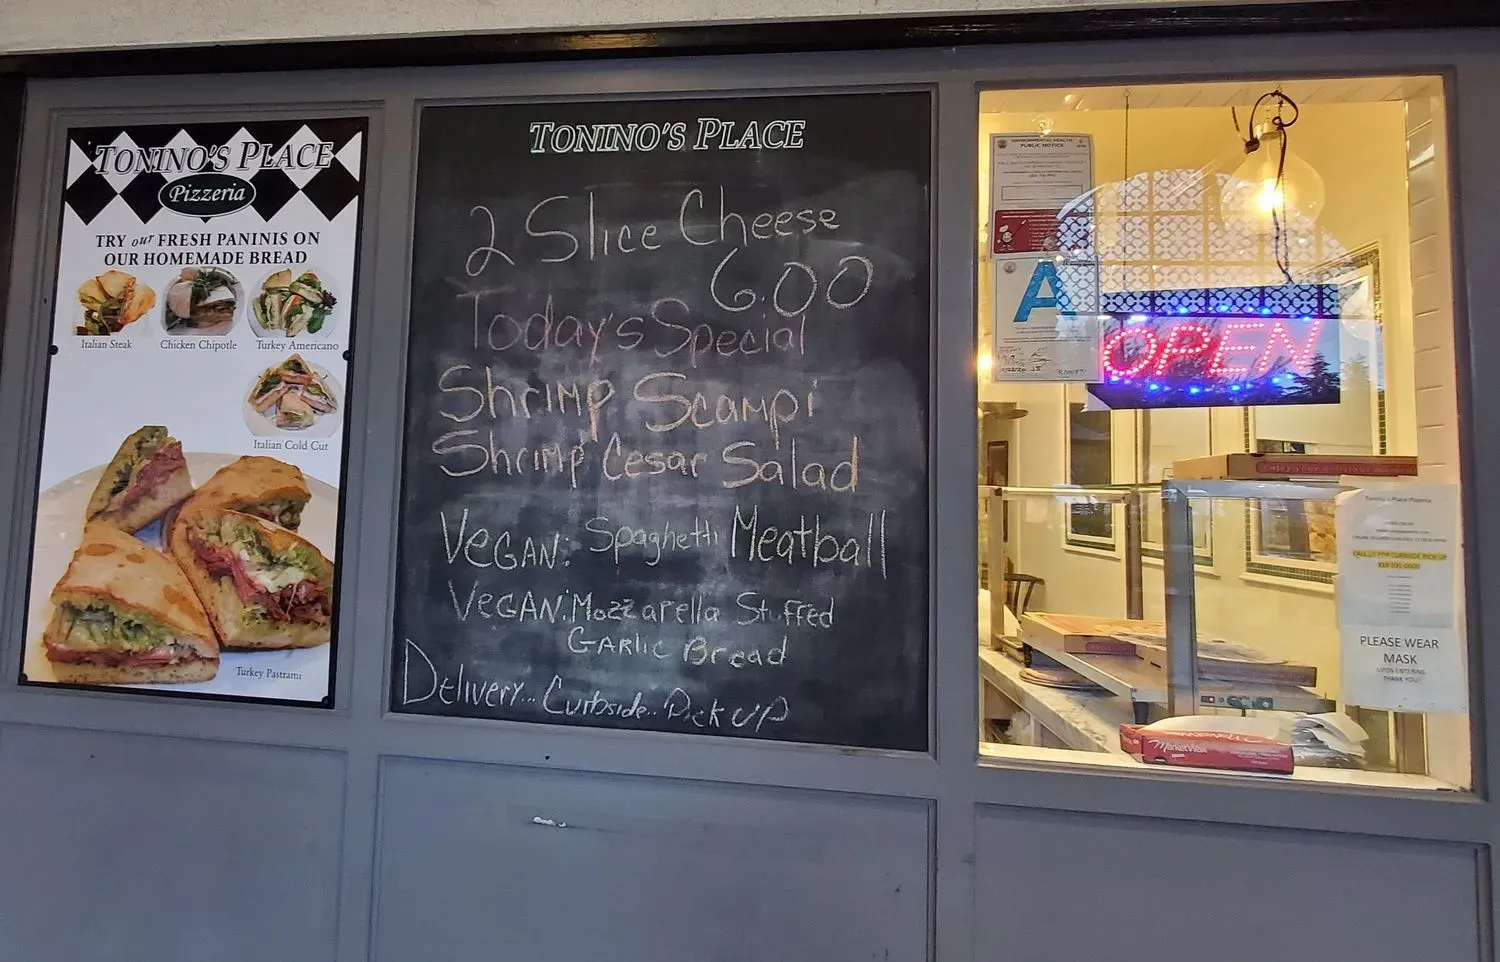 TONINO'S PLACE
Pizzeria
TRY our FRESH PANINIS ON
OUR HOMEMADE BREAD
Italian Steak
Chicken Chipotle
Turkey Americano
Italian Cold Cut
Turkey Pastrami
TONINO'S PLACE
2 Slice Cheese
6.00
Today's Special
Shrimp Scampi
Shrimp Cesar Salad
VEGAN: Spaghetti Meatball
VEGAN: Mozzarella Stuffed
GARLIC Bread
Delivery... Curbside.. Pick UP
ENVIRONMENTAL HEALTH
PUBLIC NOTICE
A
OPEN
Tonino's Place Pizzeria
CALL US FOR CURBSIDE PICK UP
PLEASE WEAR
MASK
UPON ENTERING
THANK YOU!
MarketWax